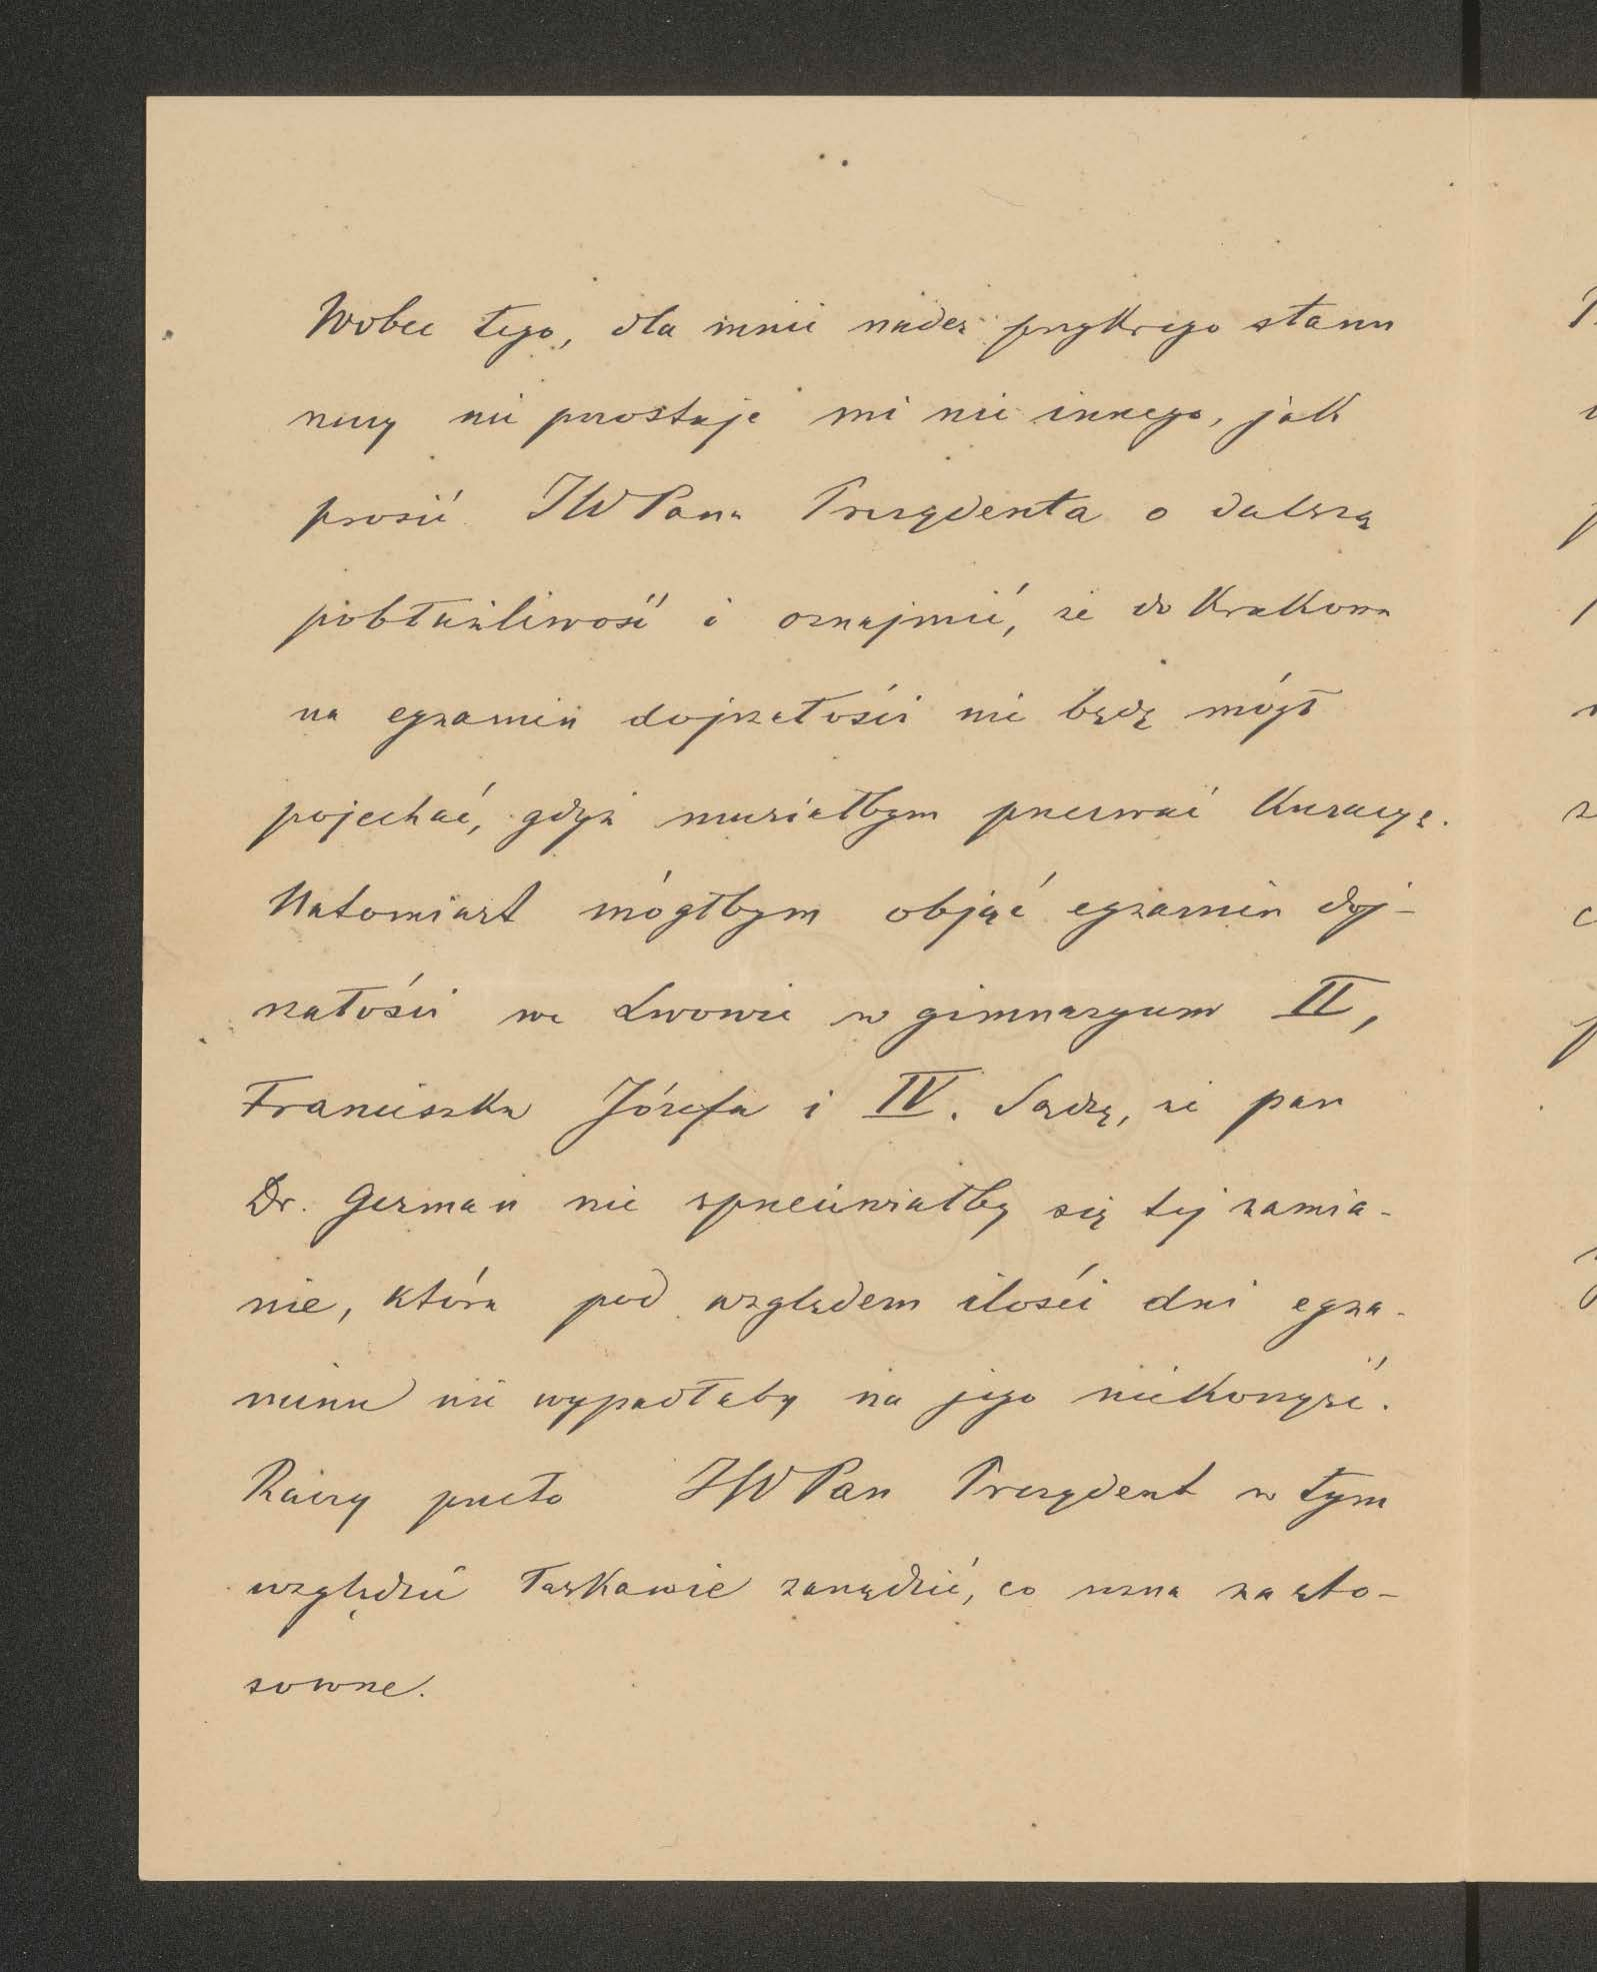 Wobec tego, dla mnie nader przykrego stanu
rzeczy nie pozostaje mi nic innego, jak
prosić JWPana Prezydenta o dalszą
pobłażliwość i oznajmić, że do Krakowa
na egzamin dojrzałości nie będę mógł
pojechać, gdyż musiałbym przerwać kuracyę.
Natomiast mógłbym objąć egzamin doj-
rzałości we Lwowie w gimnazyum II,
Franciszka Józefa i IV. Sądzę, że pan
Dr. German nie sprzeciwiałby się tej zamia-
nie, która pod względem ilości dni egza-
minu nie wypadłaby na jego niekorzyść.
Raczy przeto JWPan Prezydent w tym
względzie łaskawie zarządzić, co uzna za sto-
sowne.